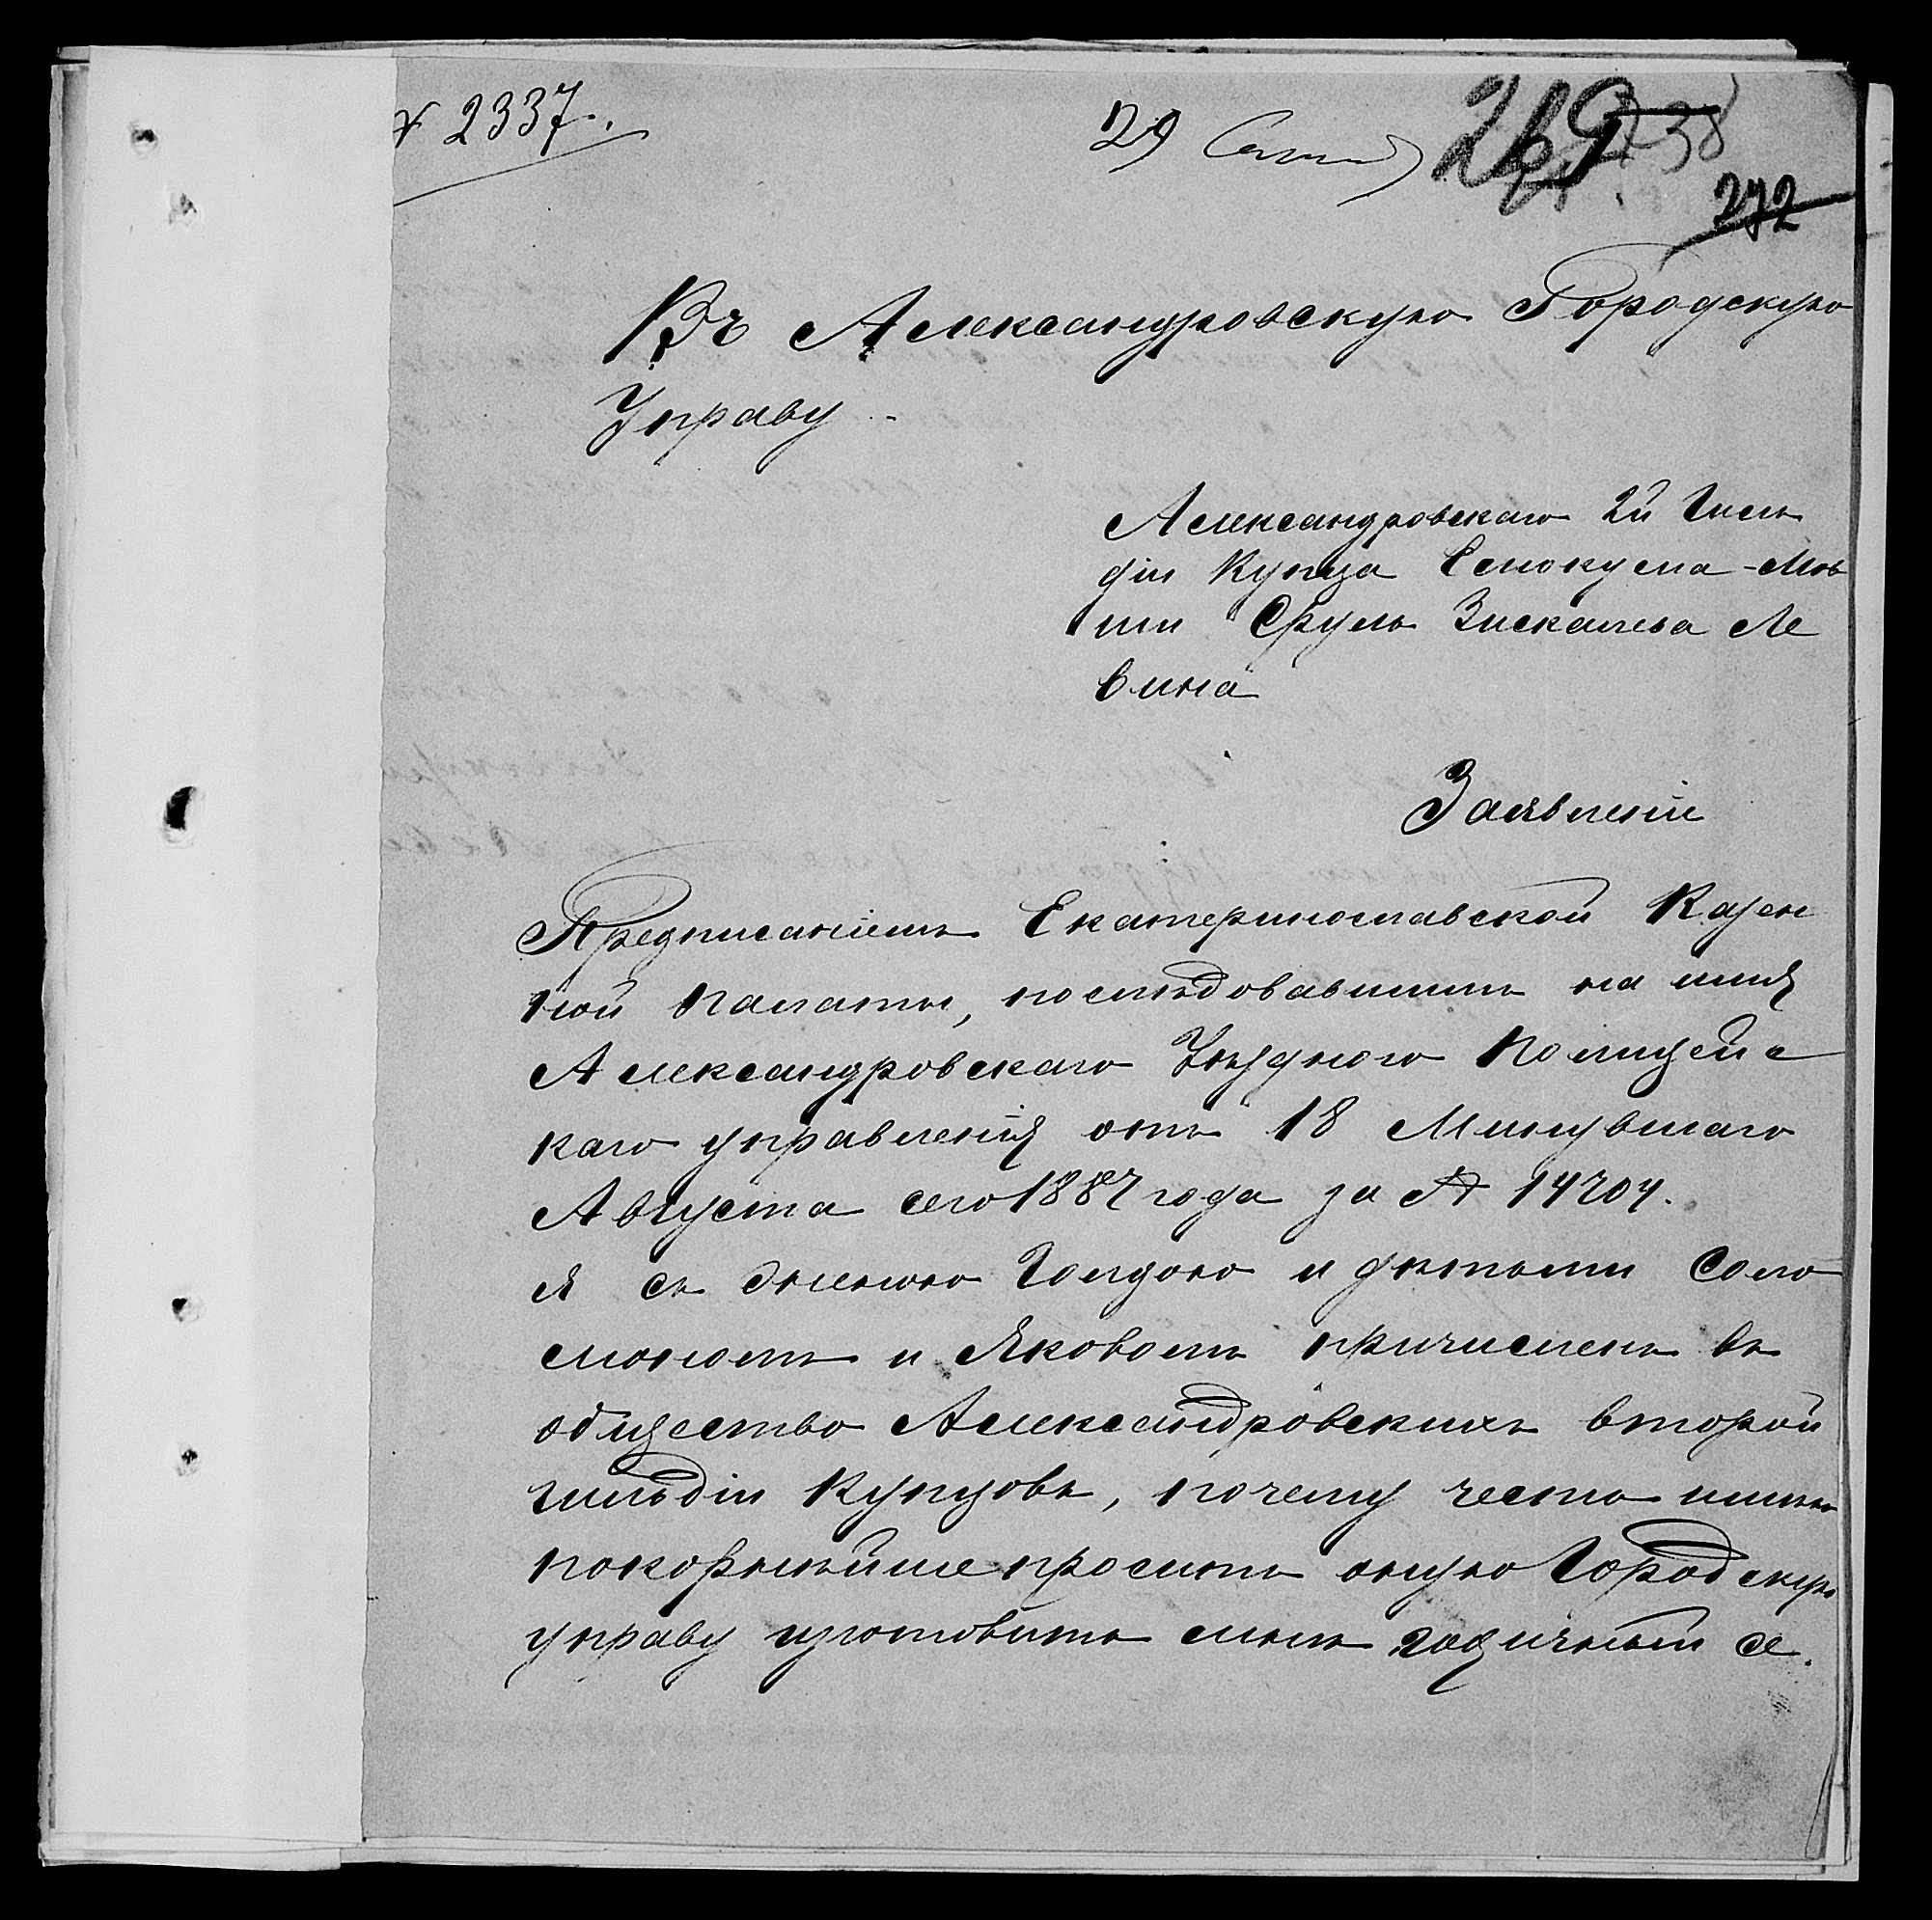 № 2337.
29 Сент
269
238
272
Въ Александровскую Городскую
Управу
Александровскаго 2й Гиль
діи Купца
Сруль Зискелева Ле
вина
Заявленіе
Предписаніемъ Екатеринославской Казен
ной Палаты, послѣдовавшимъ на имя
Александровскаго Уѣзднаго Полицейс
каго управленія отъ 18 Минувшаго
Августа сего 1887 года за № 14704.
я съ женою Голдою и дѣтьми Соло
мономъ и Яковомъ причисленъ въ
общество Александровскихъ второй
гильдіи Купцовъ, почему честь имѣю
покорнѣйше просить оную Городскую
управу изготовить мнѣ годичный се.